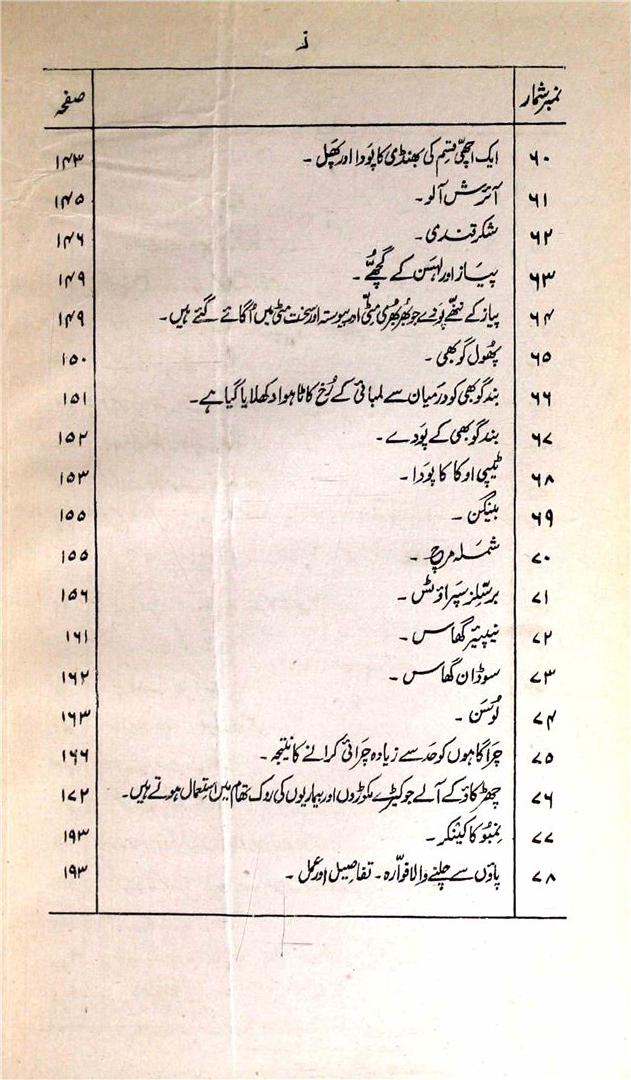 ز
نمبر شمار صفحہ
۶۰ ایک اچھّی قسم کی بھنڈی کا پَودا اور پھَل ۔ ۱۴۳
۶۱ آئرش آلو ۔ ۱۴۵
۶۲ شکر قندی ۔ ۱۴۶
۶۳ پیاز اور لہسَن کے گُچھّے ۔ ۱۴۹
۶۴ پیاز کے ننھّے پَودے جو بھُر بھُری مٹّی اور پیوستہ اور سخت مٹی میں اُگائے گئے ہیں ۔ ۱۴۹
۶۵ پھُول گوبھی ۔ ۱۵۰
۶۶ بند گوبھی کو درمیان سے لمبائی کے رُخ کاٹا ہوا دکھلایا گیا ہے ۔ ۱۵۱
۶۷ بند گوبھی کے پَودے ۔ ۱۵۲
۶۸ ٹیپی اوکا کا پَودا ۔ ۱۵۳
۶۹ بینگن ۔ ۱۵۵
۷۰ شملہ مرچ ۔ ۱۵۵
۷۱ برسلز سپراؤٹس ۔ ۱۵۶
۷۲ نیپیئر گھاس ۔ ۱۶۱
۷۳ سوڈان گھاس ۔ ۱۶۲
۷۴ لُوسَن ۔ ۱۶۳
۷۵ چراگاہوں کو حد سے زیادہ چَرائی کرانے کا نتیجہ ۔ ۱۶۶
۷۶ چھڑکاؤ کے آلے جو کیڑے مکوڑوں اور بیماریوں کی روک تھام میں استِعمال ہوتے ہیں ۔ ۱۷۲
۷۷ نِمبُو کا کینکر ۔ ۱۹۳
۷۸ پاؤں سے چلنے والا فوّارہ ۔ تفاصیل اور عمل ۔ ۱۹۳